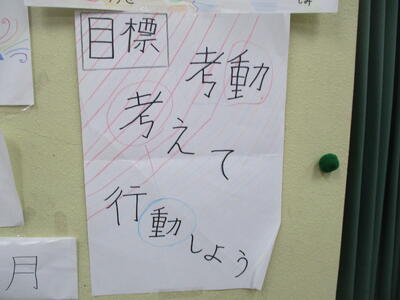 目標
考動
考えて
行動しよう
月